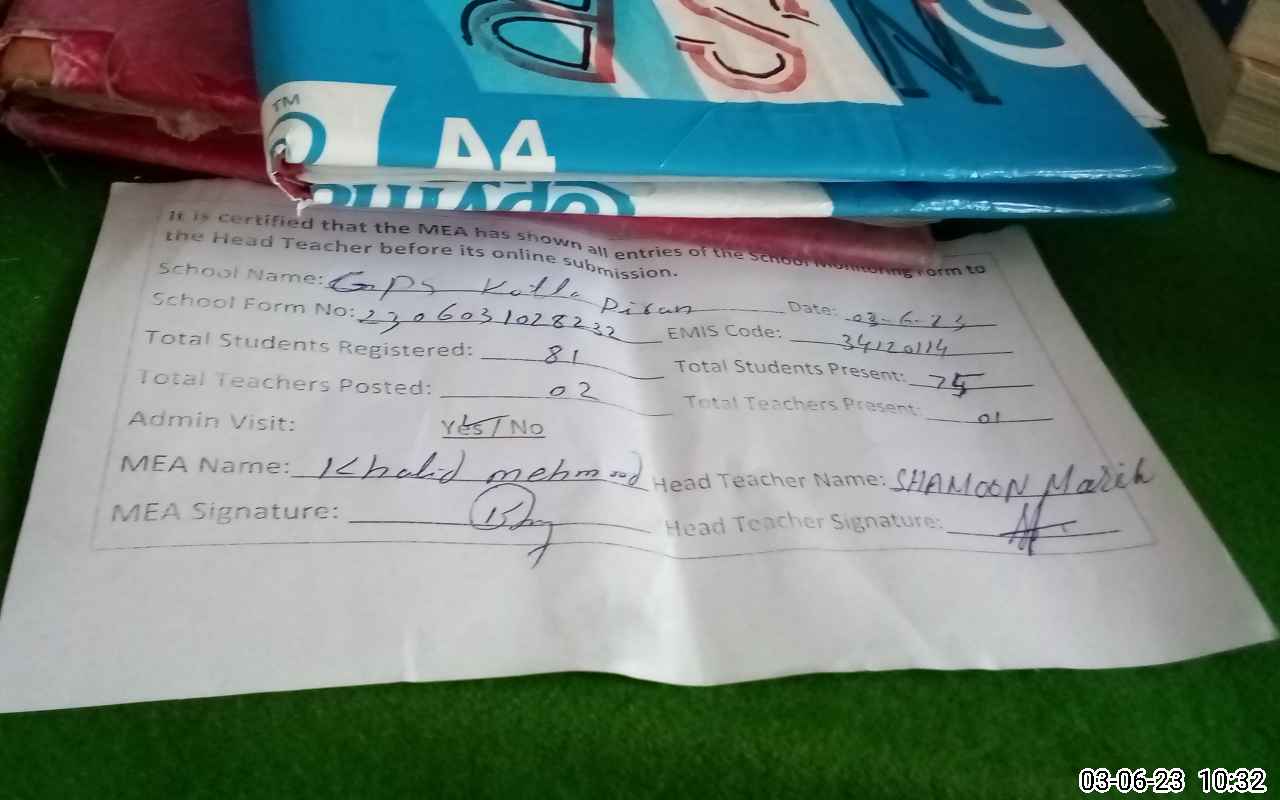 TM
A4
It is certified that the MEA has shown all entries of the School Monitoring Form to
the Head Teacher before its online submission.
School Name: GPS Kotla Diwan Date: 03-6-23
School Form No: 2306031028232 EMIS Code: 34120114
Total Students Registered: 81 Total Students Present: 75
Total Teachers Posted: 02 Total Teachers Present: 01
Admin Visit: Yes / No
MEA Name: Khalid mehmood Head Teacher Name: SHAMOON
MEA Signature: Head Teacher Signature:
03-06-23 10:32